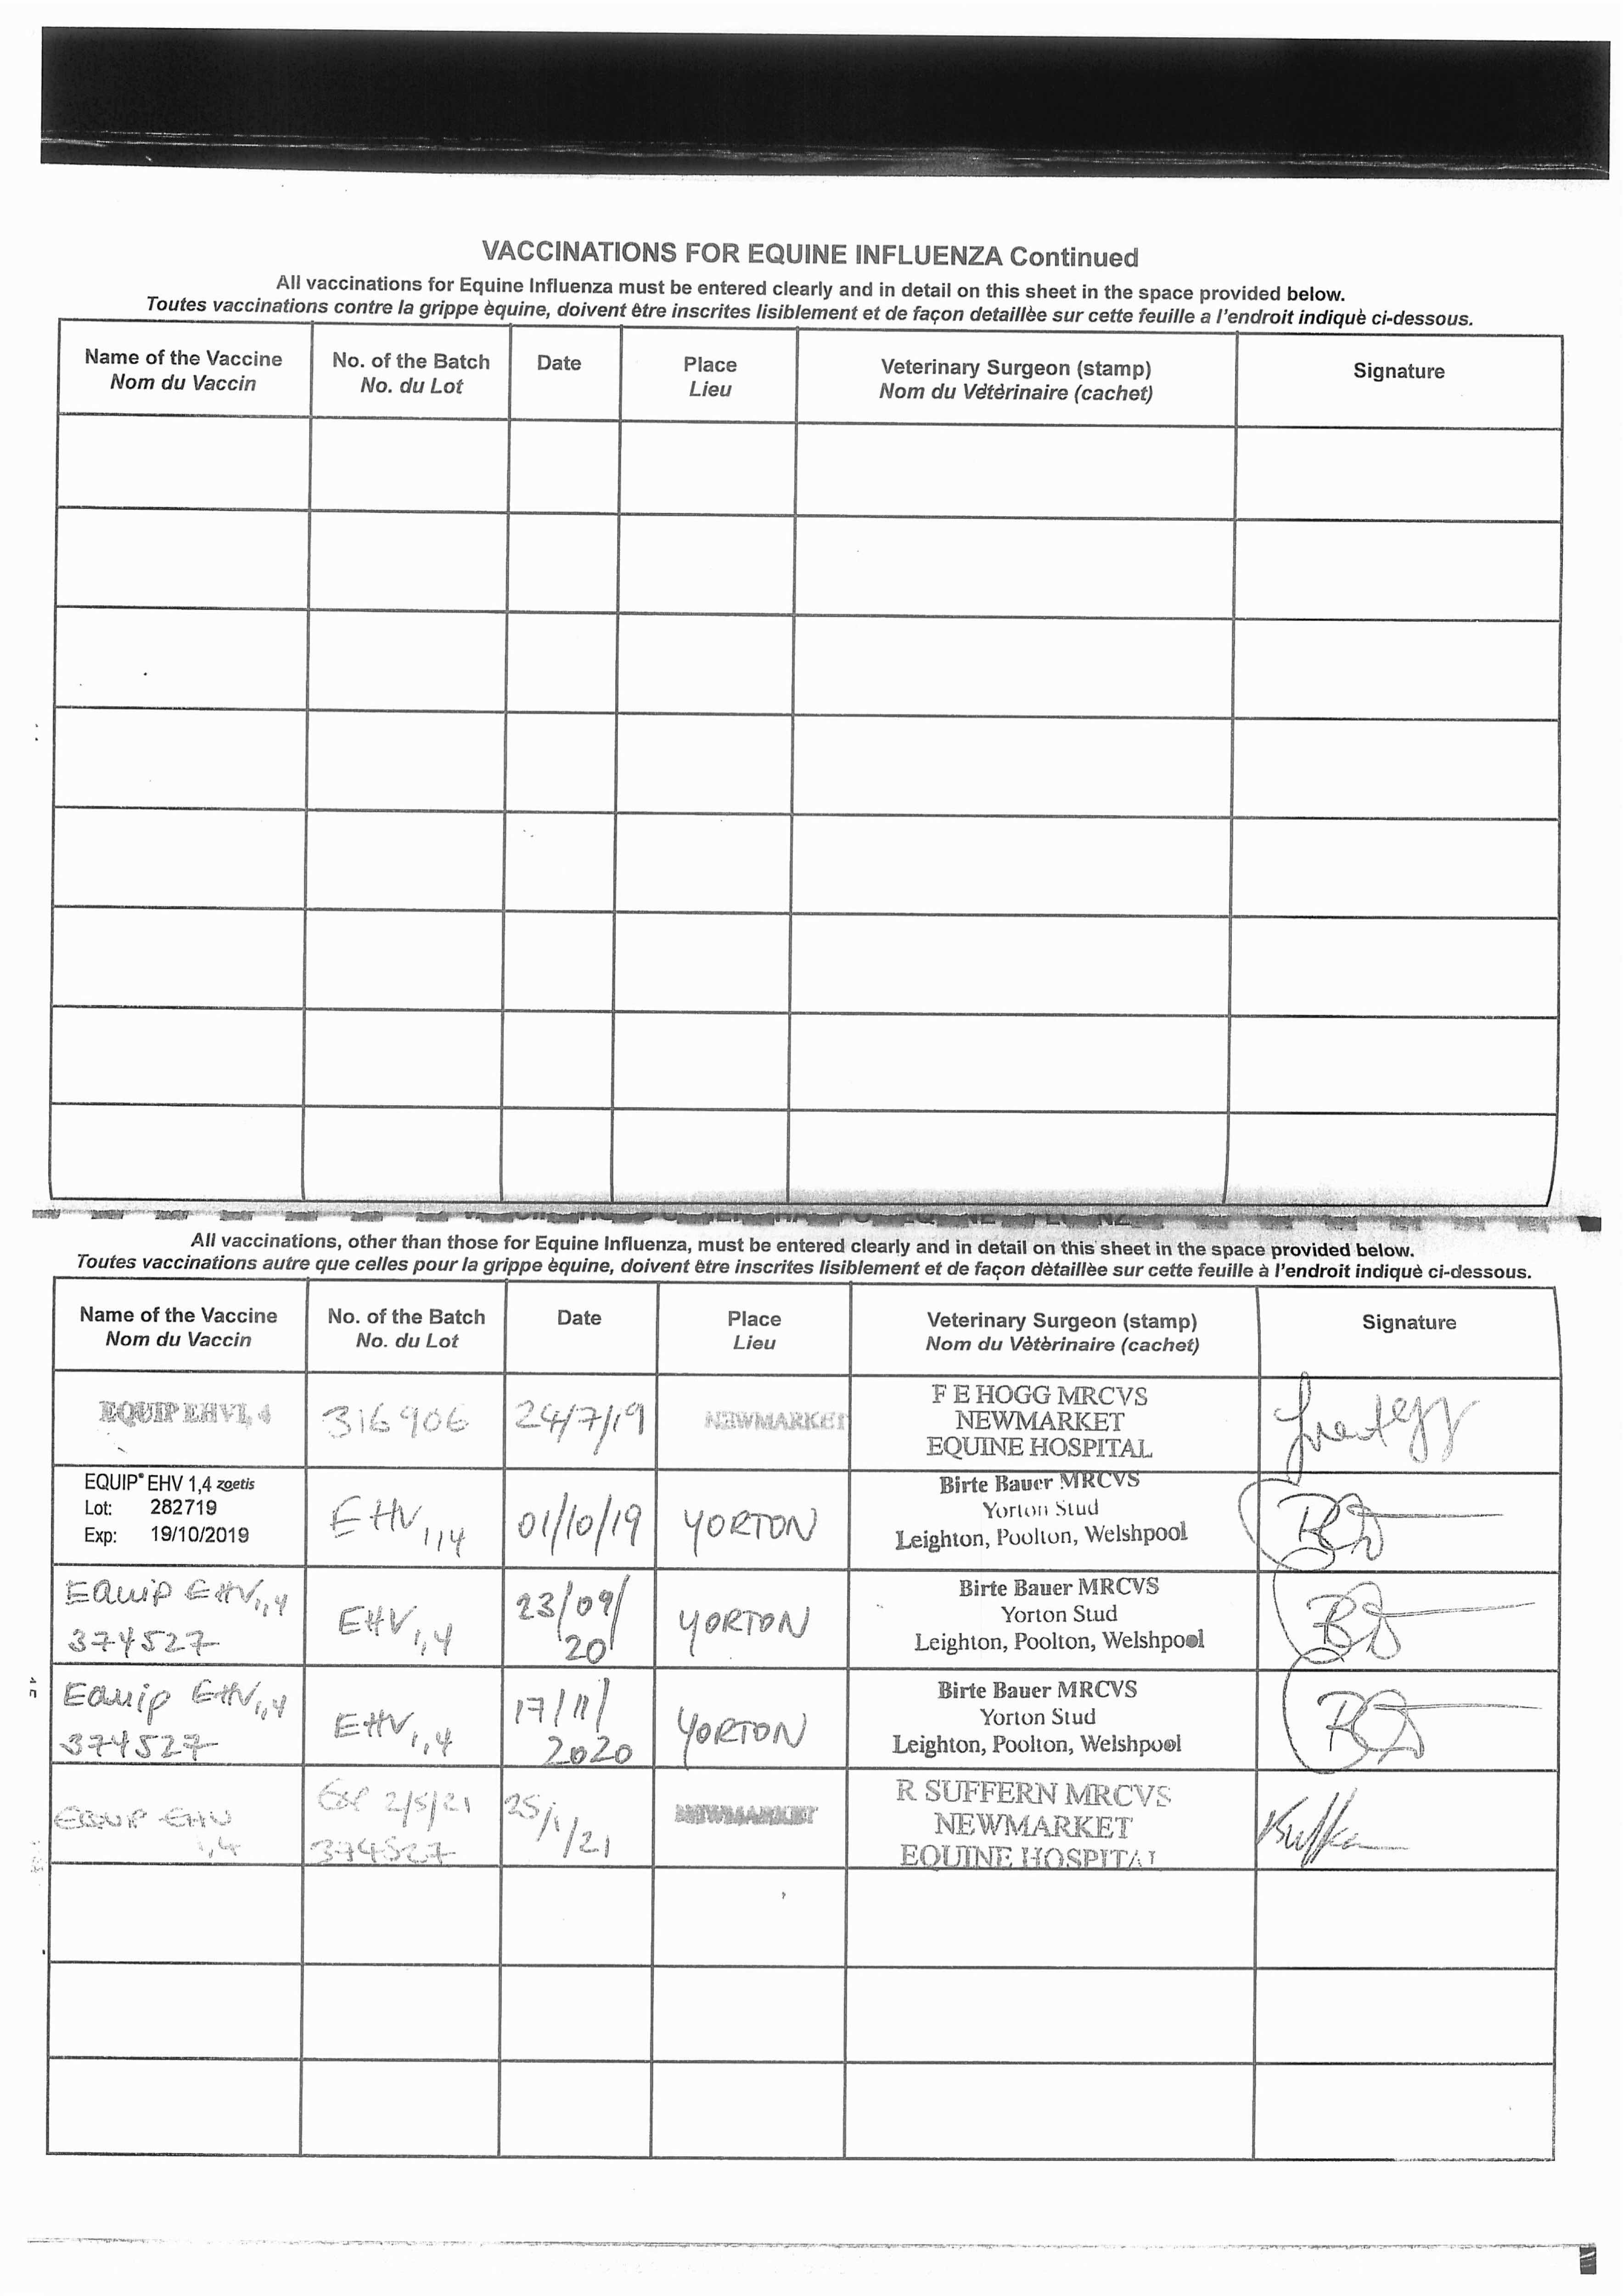 VACCINATIONS FOR EQUINE INFLUENZA Continued
All vaccinations for Equine Influenza must be entered clearly and in detail on this sheet in the space provided below.
Toutes vaccinations contre la grippe èquine, doivent être inscrites lisiblement et de façon detaillèe sur cette feuille a l'endroit indiquè ci-dessous.
Name of the Vaccine
Nom du Vaccin
No. of the Batch
No. du Lot
Date
Place
Lieu
Veterinary Surgeon (stamp)
Nom du Vétèrinaire (cachet)
Signature
All vaccinations, other than those for Equine Influenza, must be entered clearly and in detail on this sheet in the space provided below.
Toutes vaccinations autre que celles pour la grippe èquine, doivent ètre inscrites lisiblement et de façon dètaillèe sur cette feuille à l'endroit indiquè ci-dessous.
Name of the Vaccine
Nom du Vaccin
No. of the Batch
No. du Lot
Date
Place
Lieu
Veterinary Surgeon (stamp)
Nom du Vètèrinaire (cachet)
Signature
EQUIP EHV1, 4
316906
24/7/19
NEWMARKET
F E HOGG MRCVS
NEWMARKET
EQUINE HOSPITAL
EQUIP® EHV 1,4 zoetis
Lot: 282719
Exp: 19/10/2019
EHV 1,4
01/10/19
YORTON
Birte Bauer MRCVS
Yorton Stud
Leighton, Poolton, Welshpool
Equip EHV 1,4
374527
EHV 1,4
23/09/
20
YORTON
Birte Bauer MRCVS
Yorton Stud
Leighton, Poolton, Welshpool
Equip EHV 1,4
374527
EHV 1,4
17/11/
2020
YORTON
Birte Bauer MRCVS
Yorton Stud
Leighton, Poolton, Welshpool
EQUIP EHV
1,4
Exp 2/5/21
374527
25/1
/21
NEWMARKET
R SUFFERN MRCVS
NEWMARKET
EQUINE HOSPITAL